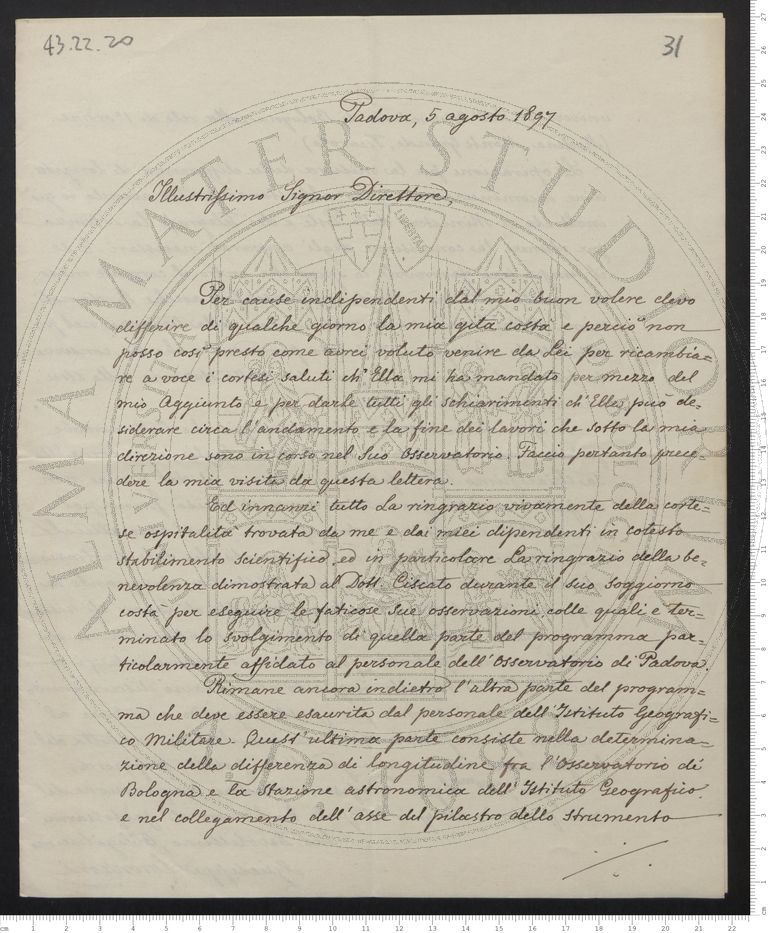 43.22.20
31
Padova, 5 agosto 1897
Illustrissimo Signor Direttore,
Per cause indipendenti dal mio buon volere devo
differire di qualche giorno la mia gita costà e perciò non
posso così presto come avrei voluto venire da Lei per ricambia=
re a voce i cortesi saluti ch'Ella mi ha mandato per mezzo del
mio Aggiunto e per darle tutti gli schiarimenti ch'Ella può de=
siderare circa l'andamento e la fine dei lavori che sotto la mia
direzione sono in corso nel Suo Osservatorio. Faccio pertanto prece=
dere la mia visita da questa lettera.
Ed innanzi tutto La ringrazio vivamente della corte=
se ospitalità trovata da me e dai miei dipendenti in cotesto
stabilimento scientifico, ed in particolare La ringrazio della be=
nevolenza dimostrata al Dott. Ciscato durante il suo soggiorno
costà per eseguire le faticose sue osservazioni colle quali è ter=
minato lo svolgimento di quella parte del programma par=
ticolarmente affidato al personale dell'Osservatorio di Padova.
Rimane ancora indietro l'altra parte del program=
ma che deve essere esaurita dal personale dell'Istituto Geografi=
co Militare. Quest'ultima parte consiste nella determina=
zione della differenza di longitudine fra l'Osservatorio di
Bologna e la Stazione astronomica dell'Istituto Geografico
e nel collegamento dell'asse del pilastro dello strumento
ALMA MATER STUDIORUM
LIBERTAS